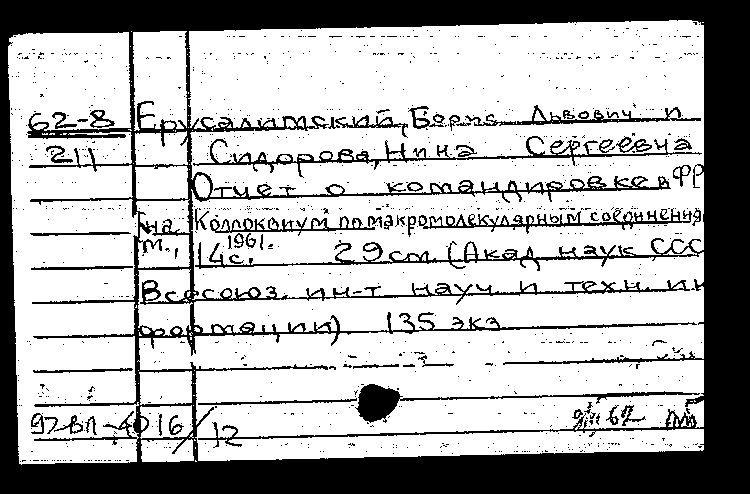 62-8 Ерусалимский, Борис Львович и
211 Сидорова, Нина Сергеевна
Отчет о командировке в ФР
на Коллоквиум по макромолекулярным соединения
М., 1961.
14с. 29см. (Акад. наук ССС
Всесоюз. ин-т науч. и техн. ин
формации) 135 экз
92-ВЛ-4016/12 62